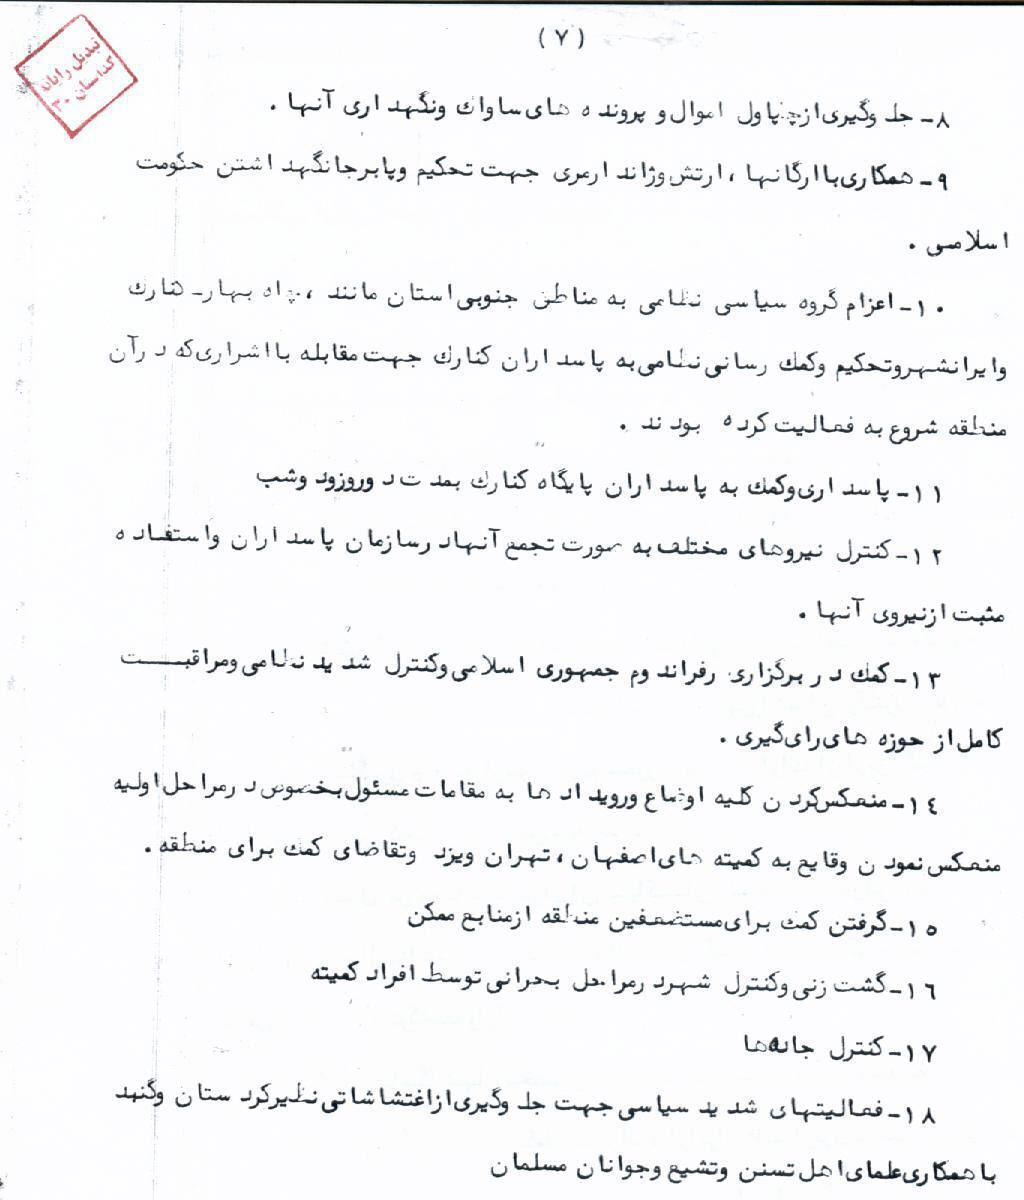 (۷)
تبدیل رایانه
۸- جلوگیری از چپاول اموال و پرونده های ساواك ونگهداری آنها .
۹- همکاری با ارگانها ، ارتش وژاندارمری جهت تحکیم وپابرجا نگهداشتن حکومت
اسلامی .
۱۰- اعزام گروه سیاسی نظامی به مناطق جنوبی استان مانند ، چاه بهار - کنارك
وایرانشهر وتحکیم وکمك رسانی نظامی به پاسداران کنارك جهت مقابله با اشراری که در آن
منطقه شروع به فعالیت کرده بودند .
۱۱- پاسداری وکمك به پاسداران پایگاه کنارك بمدت دو روز ود وشب
۱۲- کنترل نیروهای مختلف به صورت تجمع آنها در سازمان پاسداران واستفاده
مثبت از نیروی آنها .
۱۳- کمك در برگزاری رفراندوم جمهوری اسلامی وکنترل شدید نظامی ومراقبت
کامل از حوزه های رای گیری .
۱٤- منعکس کردن کلیه اوضاع ورویدادها به مقامات مسئول بخصوص در مراحل اولیه
منعکس نمودن وقایع به کمیته های اصفهان ، تهران ویزد وتقاضای کمك برای منطقه .
۱٥- گرفتن کمك برای مستضعفین منطقه از منابع ممکن
۱٦- گشت زنی وکنترل شهر در مراحل بحرانی توسط افراد کمیته
۱۷- کنترل جاده‌ها
۱۸- فعالیتهای شدید سیاسی جهت جلوگیری از اغتشاشاتی نظیر کردستان وگنبد
با همکاری علمای اهل تسنن وتشیع وجوانان مسلمان